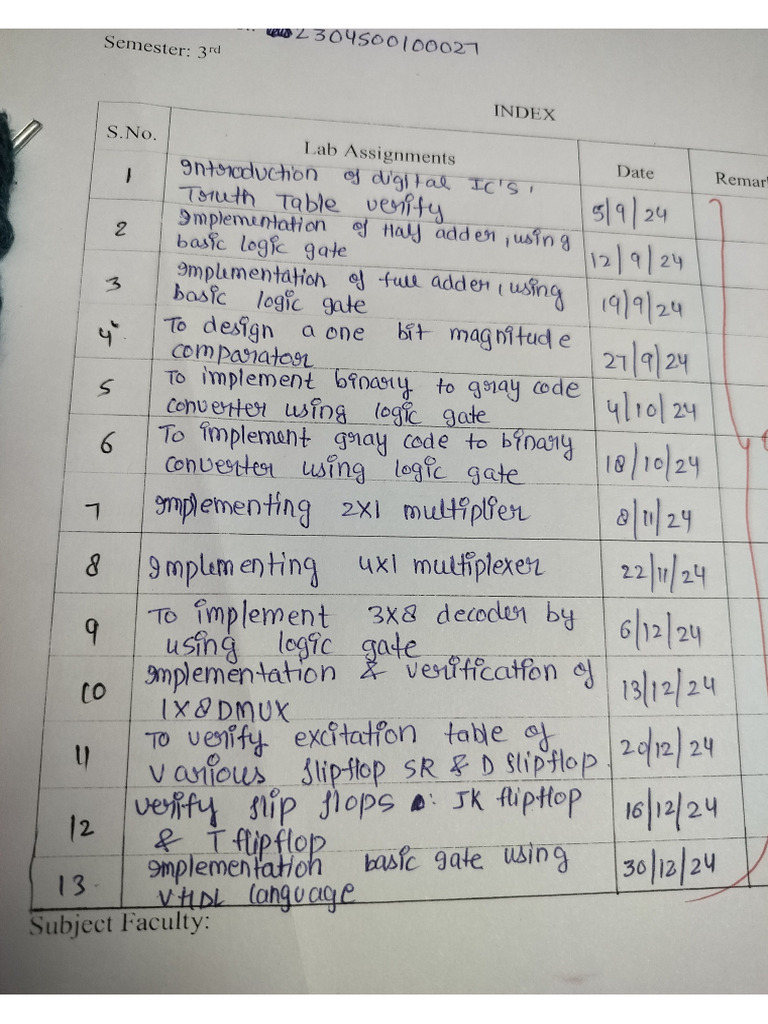 2304500100027
Semester: 3rd
INDEX
S.No. Lab Assignments Date Remar
1 Introduction of digital IC'S,
Truth Table verify 5/9/24
2 Implementation of Half adder, using
basic logic gate 12/9/24
3 Implementation of full adder, using
basic logic gate 19/9/24
4 To design a one bit magnitude
comparator 27/9/24
5 To implement binary to gray code
converter using logic gate 4/10/24
6 To implement gray code to binary
converter using logic gate 18/10/24
7 Implementing 2x1 multiplier 8/11/24
8 Implementing 4x1 multiplexer 22/11/24
9 To implement 3x8 decoder by
using logic gate 6/12/24
10 Implementation & verification of
1X8DMUX 13/12/24
11 To verify excitation table of
various flipflop SR & D flipflop. 20/12/24
12 verify flip flops : JK flipflop
& T flipflop 16/12/24
13. Implementation basic gate using
VHDL language 30/12/24
Subject Faculty: